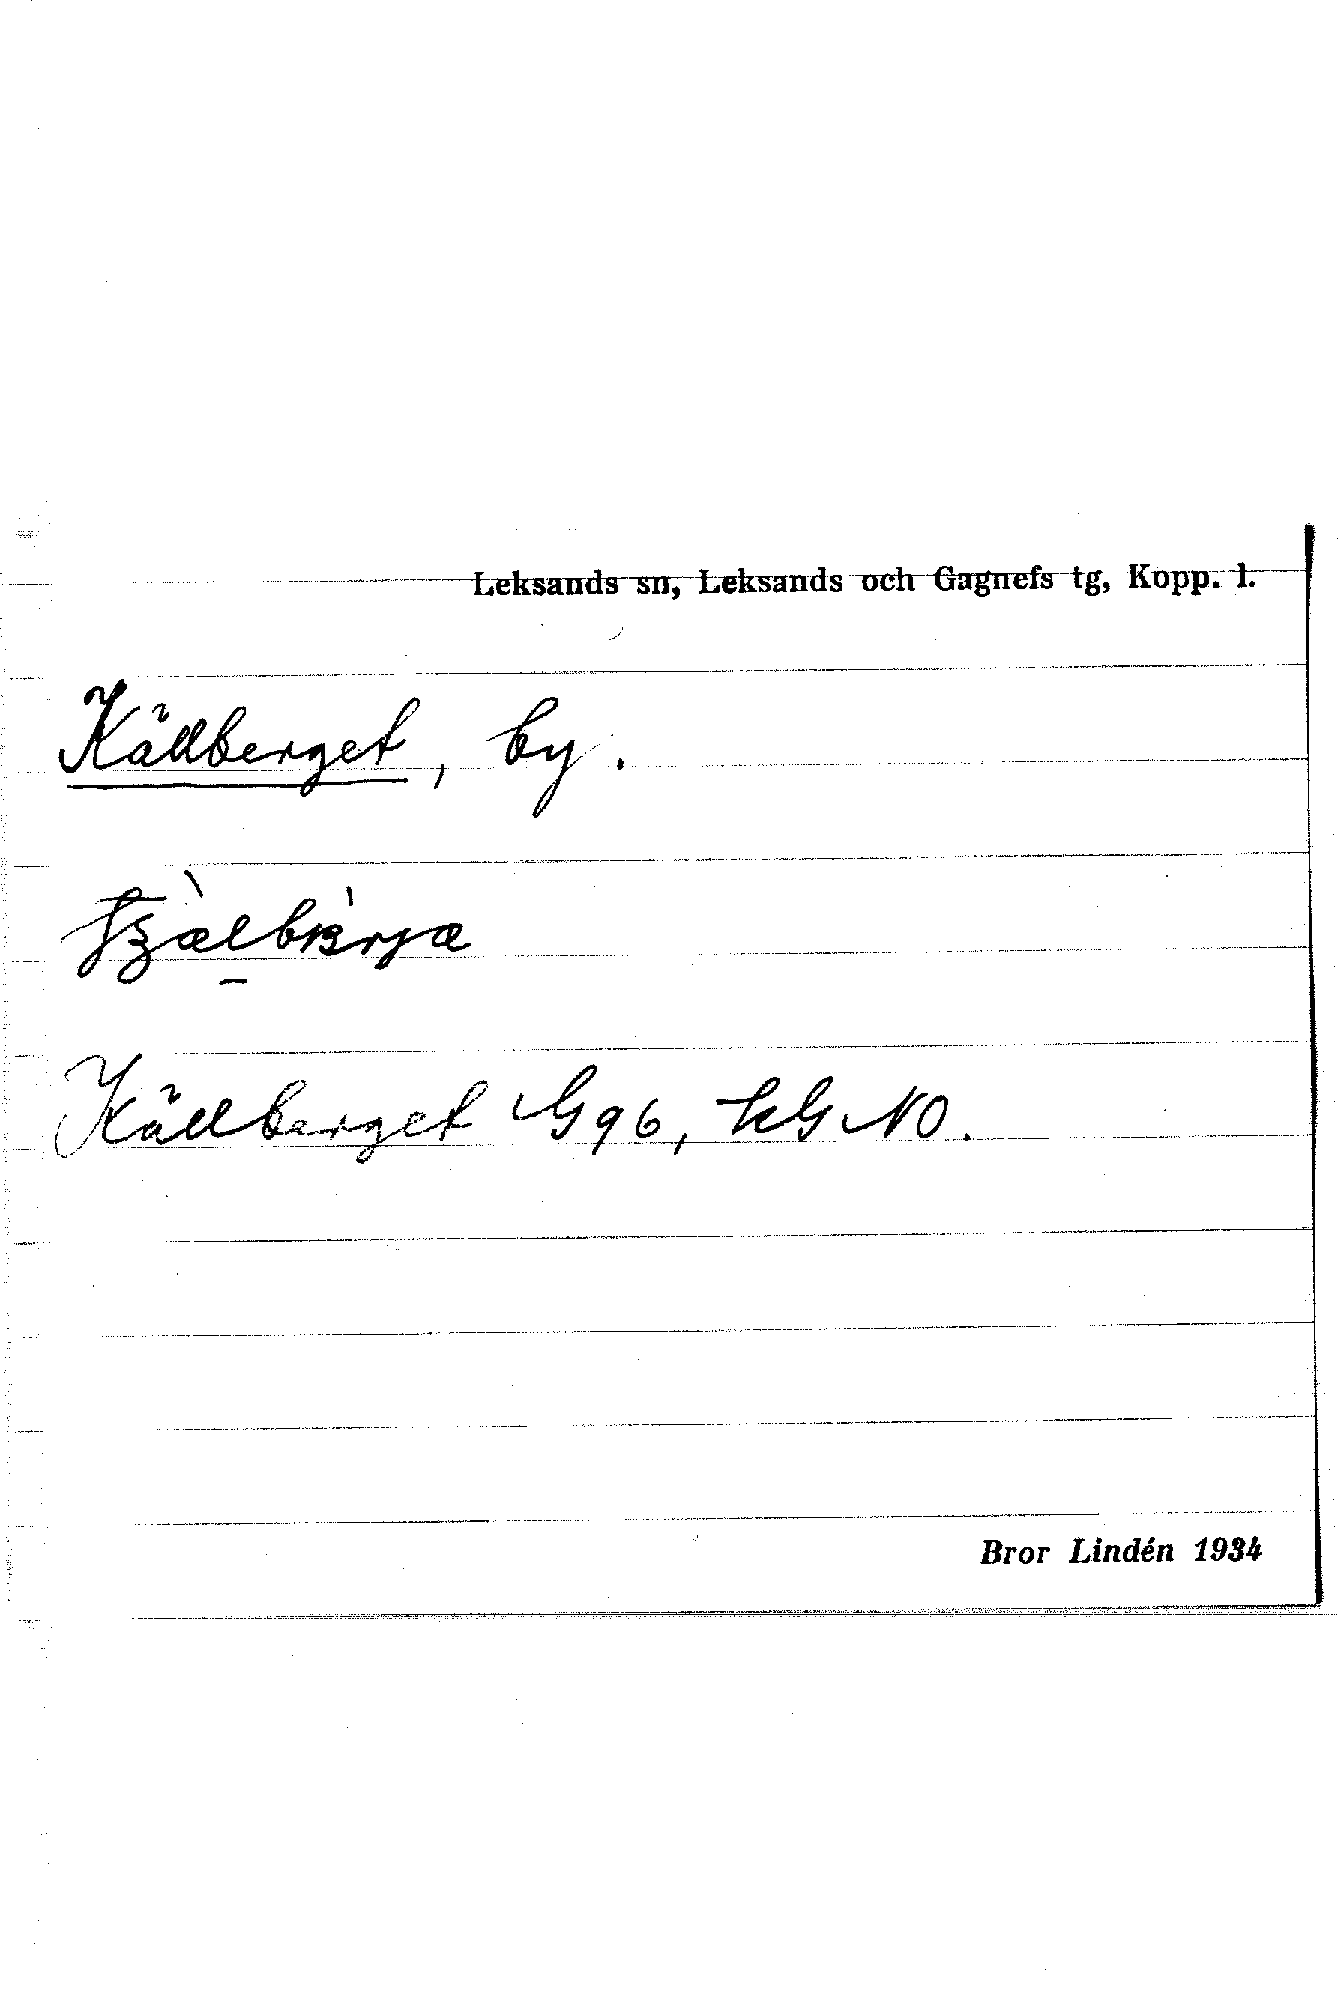 Leksands sn, Leksands och Gagnefs tg, Kopp. l.
Källberget, by.
Källberget G96, hGNO.
Bror Lindén 1934